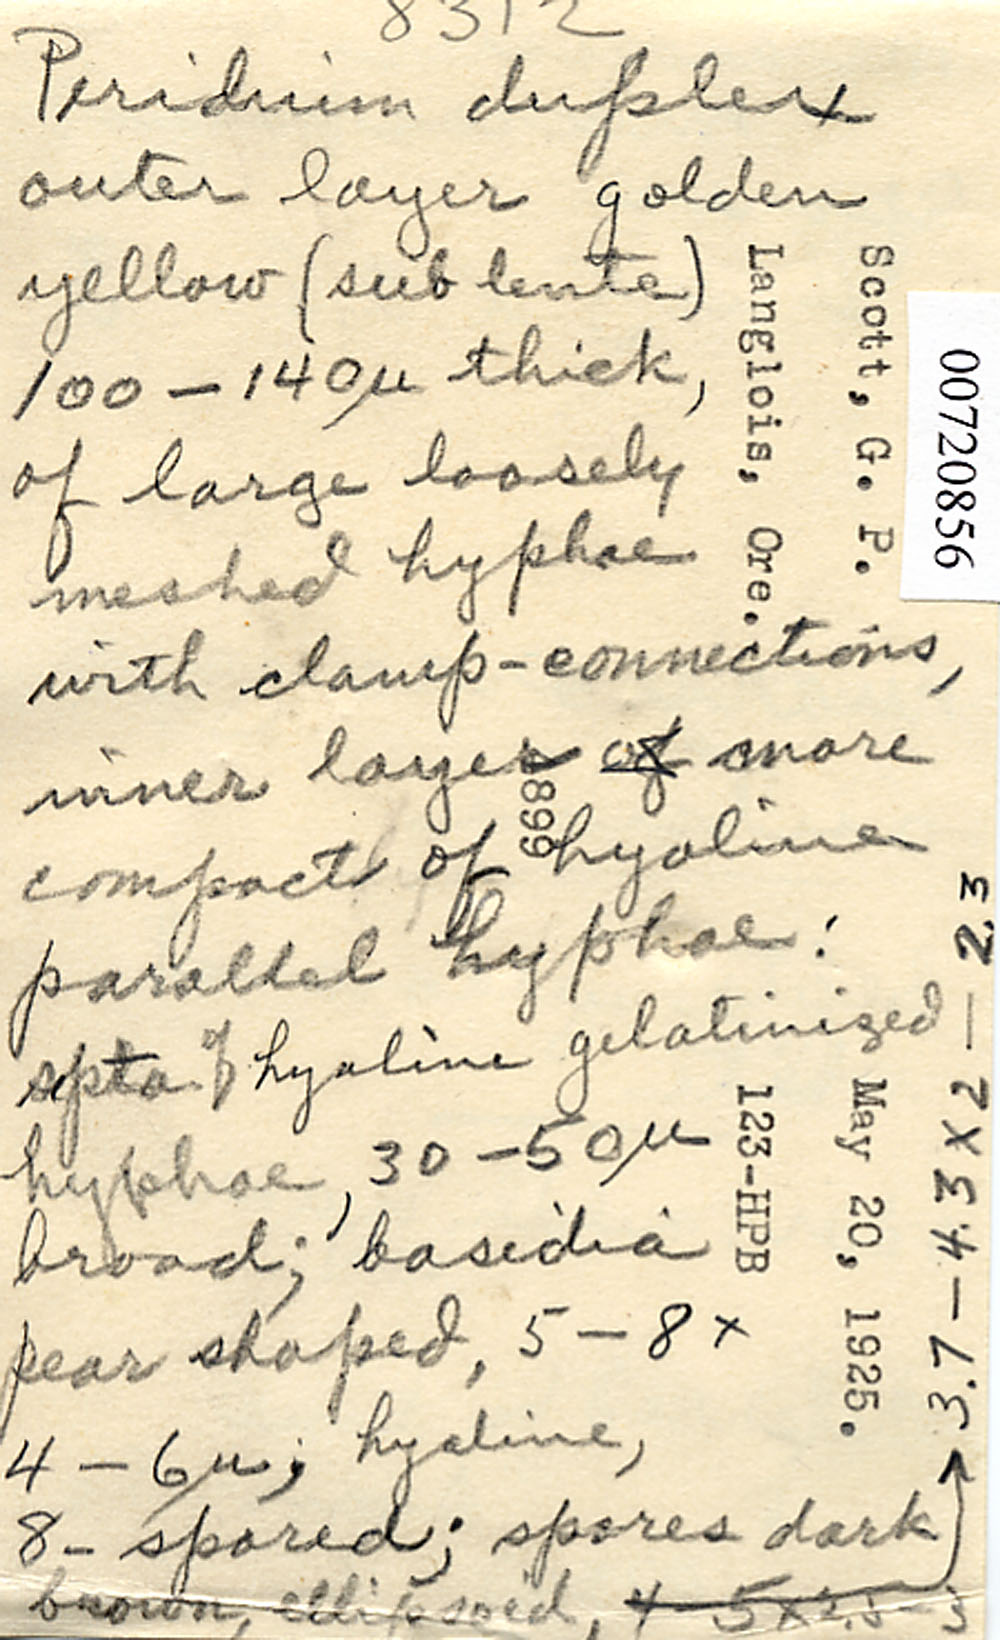 8312
Peridium duplex
outer layer golden
yellow (sub lente)
100-140µ thick,
of large loosely
meshed hyphae
with clamp-connections,
inner layer of more
compact of hyaline
parallel hyphae:
septa of hyaline gelatinized
hyphae, 30-50µ
broad; basidia
pear shaped, 5-8 x
4-6µ; hyaline,
8-spored; spores dark
brown, ellipsoid, 4-5x2.5-3
3.7-4.3 x 2-2.3
Scott, G. P.
Langlois, Ore.
899
123-HPB
May 20, 1925.
00720856